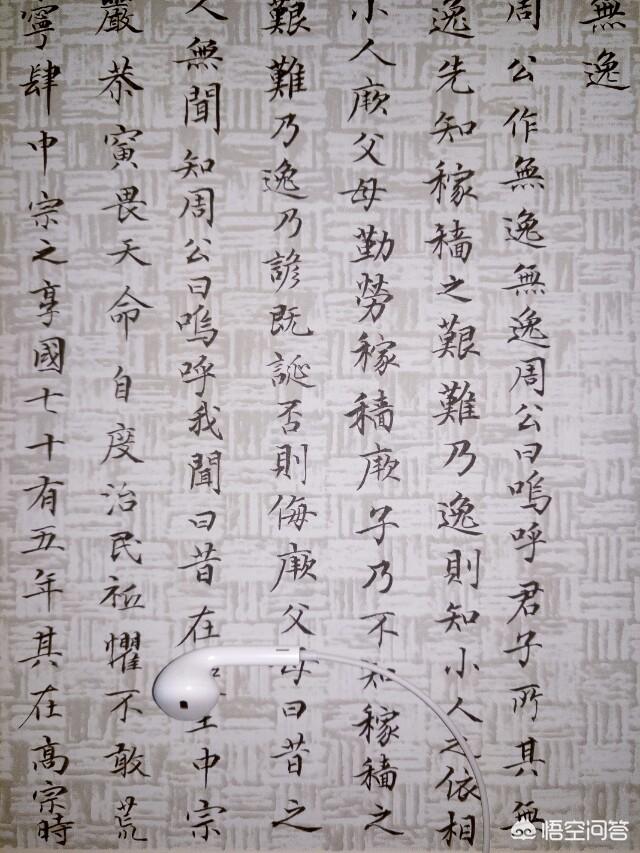 無逸
周公作無逸無逸周公曰嗚呼君子所其無
逸先知稼穡之艱難乃逸則知小人之依相
小人厥父母勤勞稼穡厥子乃不知稼穡之
艱難乃逸乃諺既誕否則侮厥父母曰昔之
人無聞知周公曰嗚呼我聞曰昔在王中宗
嚴恭寅畏天命自度治民祗懼不敢荒
寧肆中宗之享國七十有五年其在高宗時
悟空问答